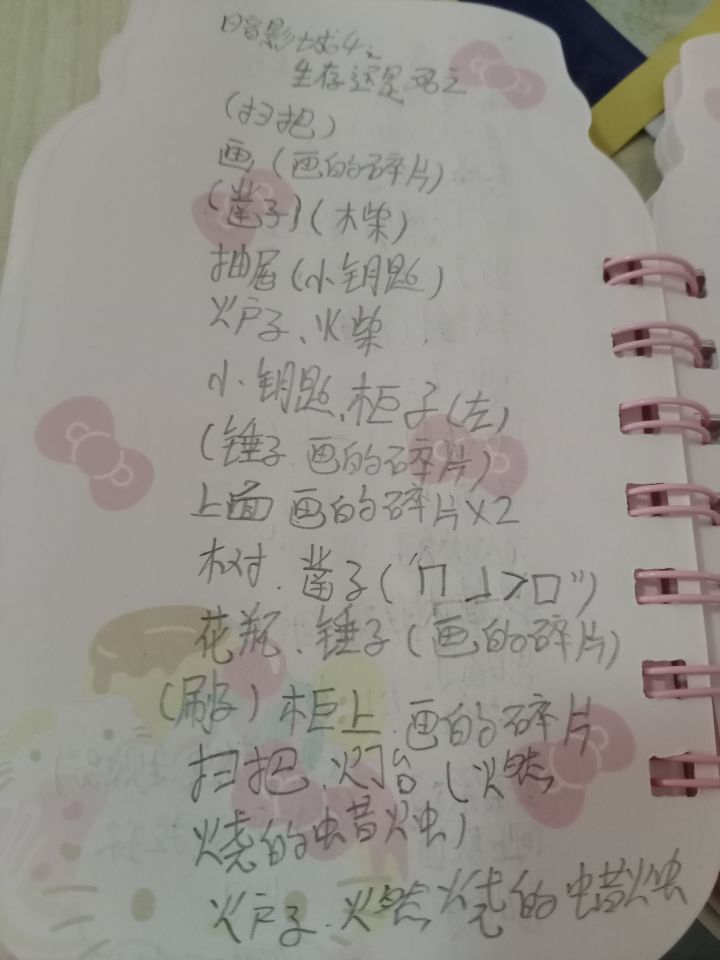 暗影火球4:
生存还是死亡
(扫把)
画(画的碎片)
(凿子)(木柴)
抽屉(小钥匙)
火炉子、火柴
小钥匙、柜子(左)
(锤子 画的碎片)
上面 画的碎片×2
木对.凿子("ㄇ⊥>□")
花瓶、锤子(画的碎片)
(刷子)柜上.画的碎片
扫把、灯台(火燃
烧的蜡火虫)
炉子.火燃烧的蜡火虫